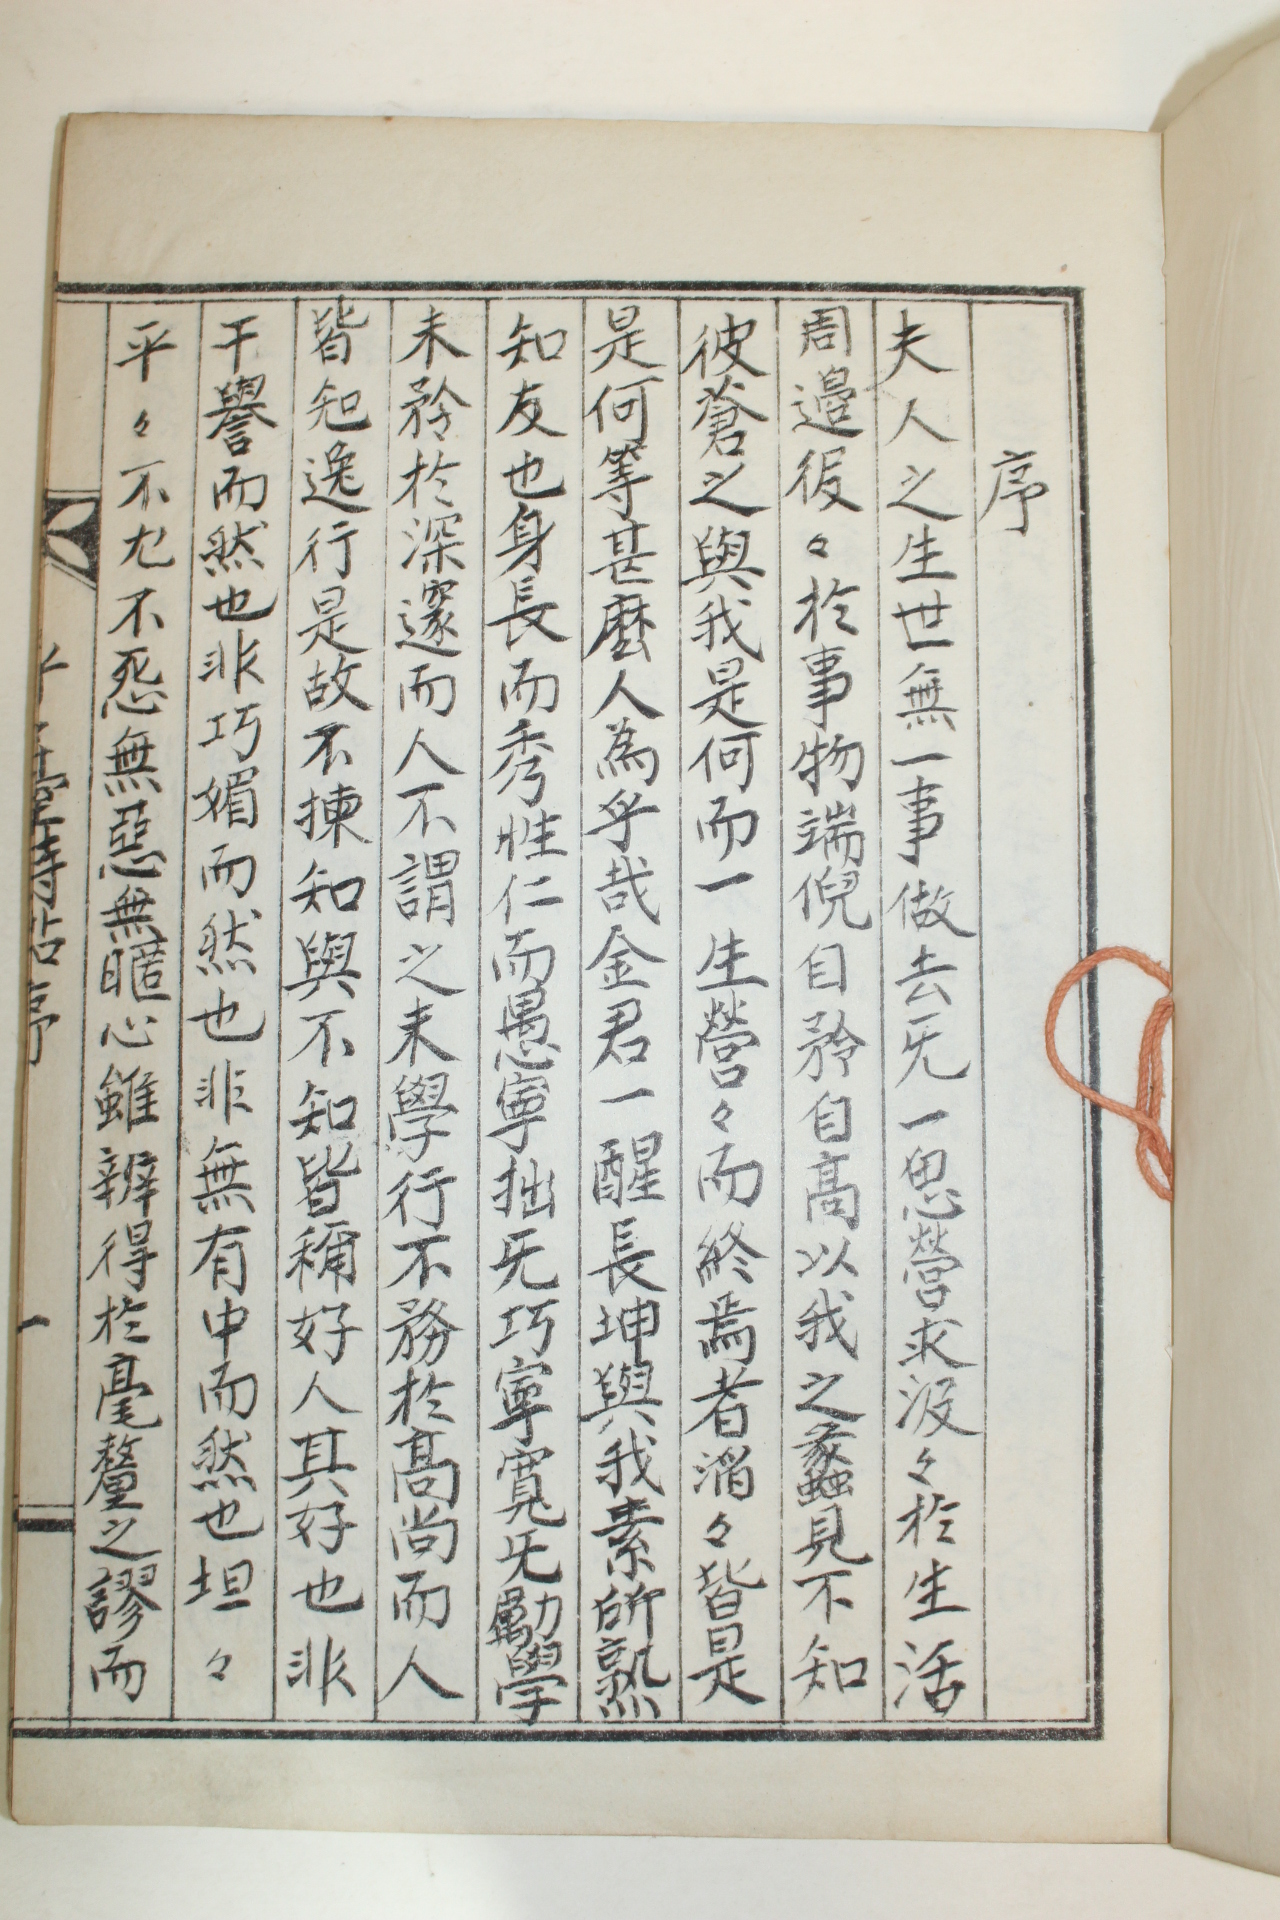 序
夫人之生世無一事做去旡一思營求汲々於生活
周邉役々於事物端倪自矜自高以我之蠡見不知
彼蒼之與我是何而一生營々而終焉者滔々皆是
是何等甚麽人為乎哉金君一醒長坤與我素所熟
知友也身長而秀性仁而愚寧拙旡巧寧寬旡勵學
未矜於深邃而人不謂之未學行不務於高尚而人
皆知逸行是故不揀知與不知皆稱好人其好也非
干譽而然也非巧媚而然也非無有中而然也坦々
平々不尤不怨無惡無暱心雖辨得於毫釐之謬而
臺詩帖序
一